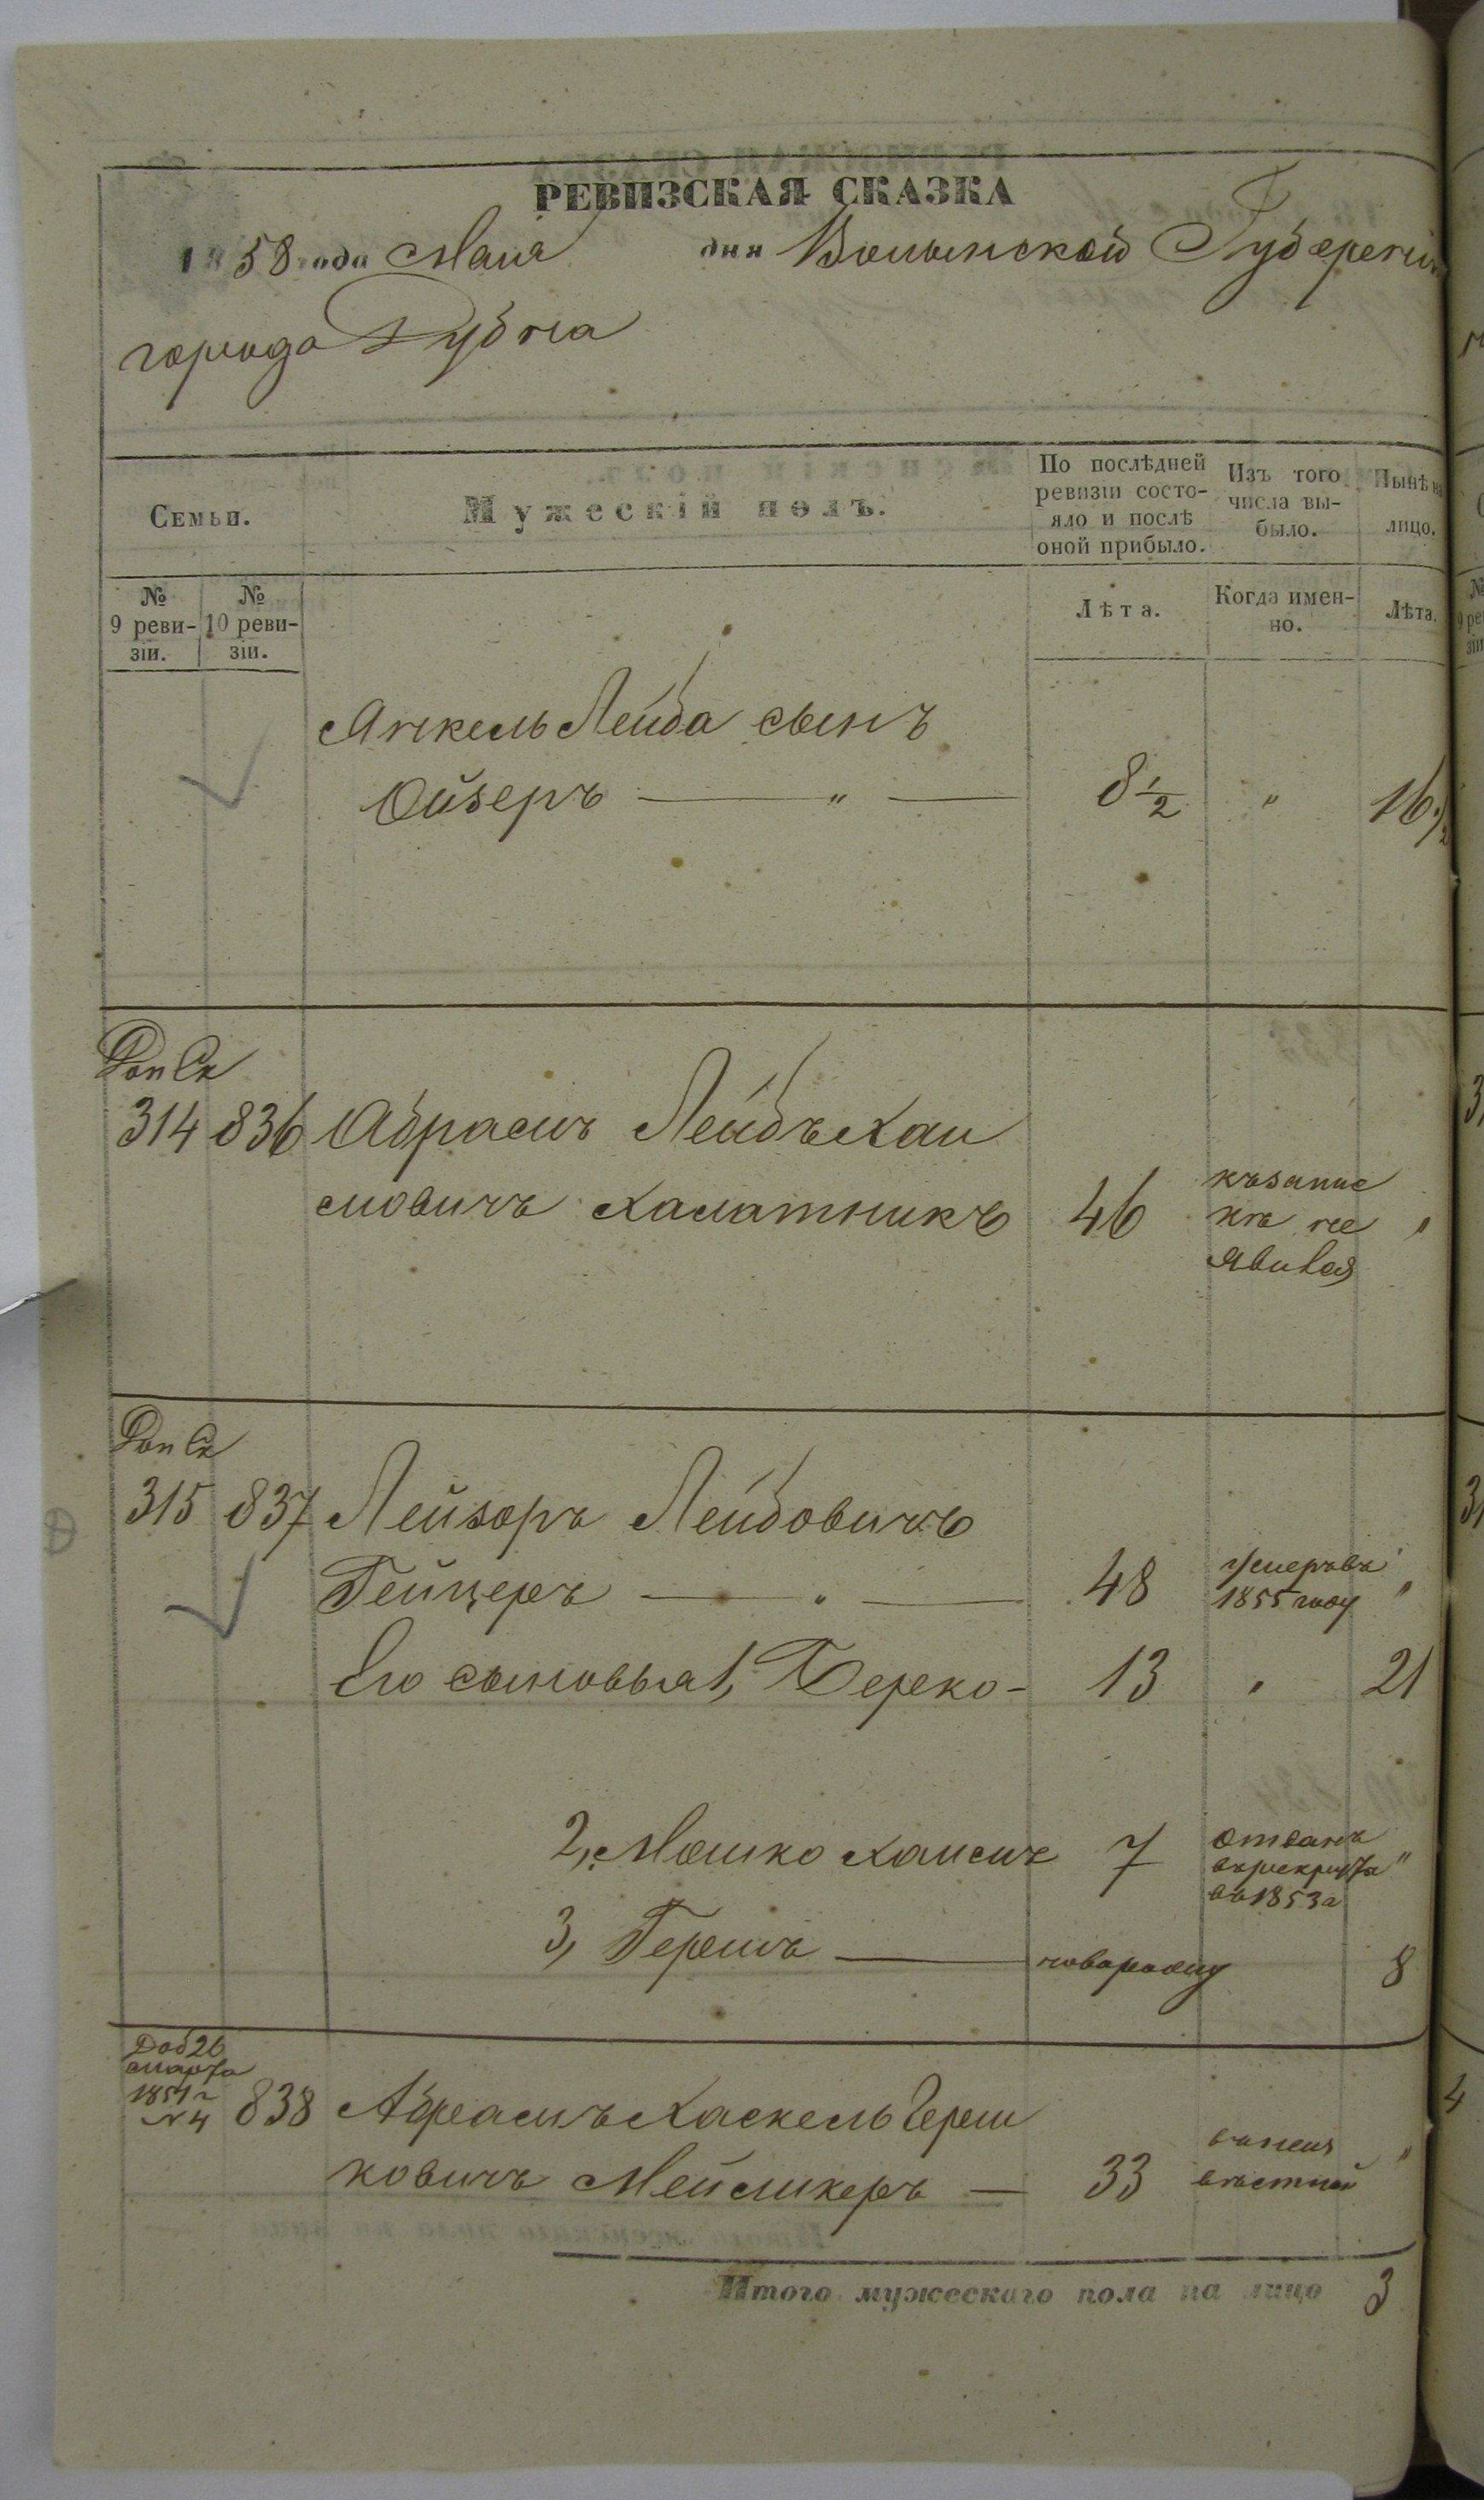 РЕВИЗСКАЯ СКАЗКА
1858 года Мая дня Волынской Губернии
города Дубна
Семьи.
Мужескій полъ.
По послѣдней ревизіи состояло и послѣ оной прибыло.
Изъ того числа выбыло.
Нынѣ на лицо.
№ 9 ревизіи.
№ 10 ревизіи.
Лѣта.
Когда именно.
Лѣта.
Янкель Лейба сынъ
Ойзеръ — " — 8 1/2 " 16 1/2
Доп Ск
314 836 Абрамъ Лейбъ Хаи
мовичъ Халатникъ 46 "
не
явился
Доп Ск
315 837 Лейзоръ Лейбовичъ
Гейцеръ — " — 48 умеръ въ 1855 году "
Его сыновья 1, Береко - 13 " 21
2, Мошко Хаимъ 7 отданъ в рекрута въ 1853 г "
3, Гершъ — новорожд 8
Доб 26
марта
1851 г
№ 4
838 Абрамъ Хаскель Герш
ковичъ Мейликеръ — 33 "
Итого мужескаго пола на лицо 3